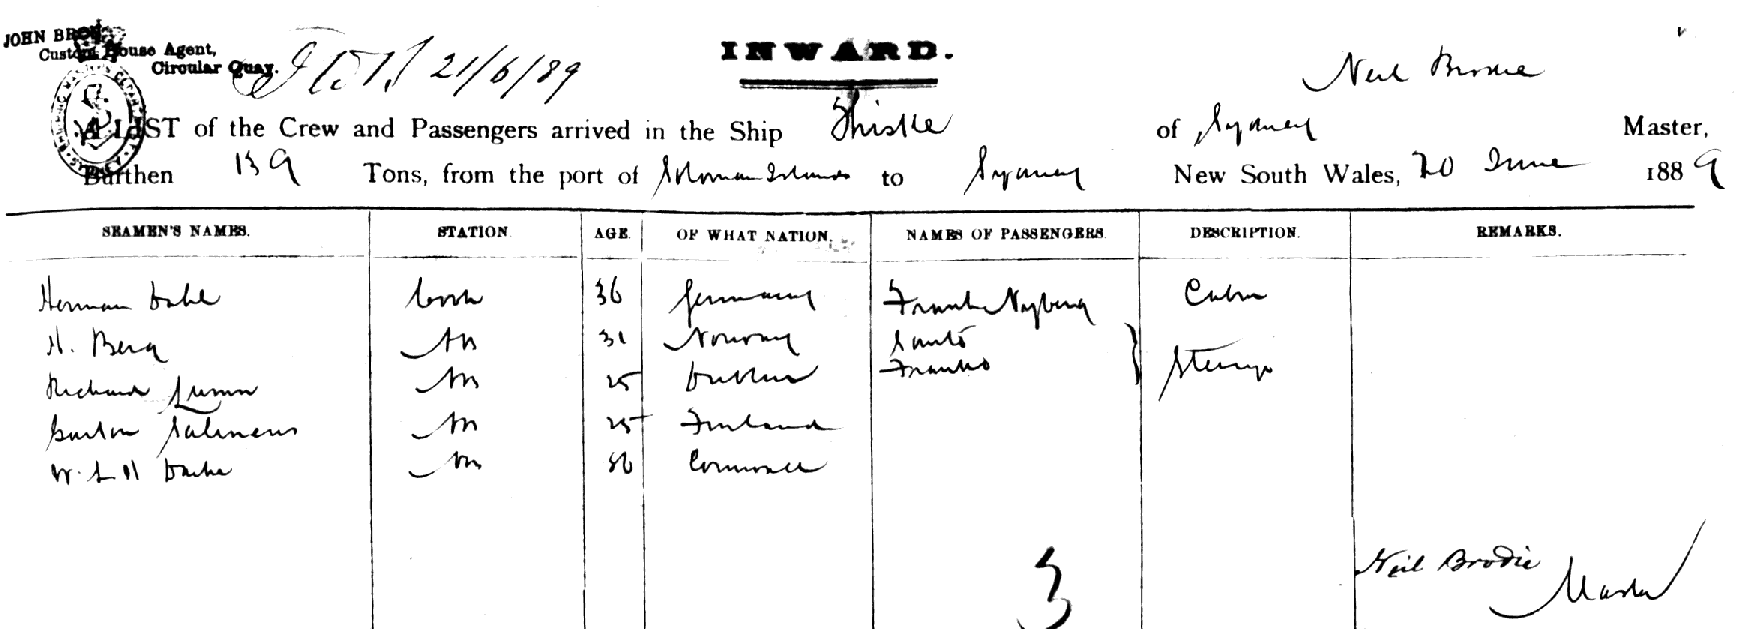 JOHN BRO
Custom House Agent,
Circular Quay.
21/6/89
INWARD.
Neil Brodie
A LIST of the Crew and Passengers arrived in the Ship Thistle of Sydney Master,
Burthen 139 Tons, from the port of Solomon Islands to Sydney New South Wales, 20 June 1889
SEAMEN'S NAMES. STATION. AGE. OF WHAT NATION. NAMES OF PASSENGERS. DESCRIPTION. REMARKS.
Herman Dahl Cook 36 Germany Frank Nyberg Cabin
H. Berg AB 31 Norway Santo
Richard AB 25 Dublin Franko Steerage
Gustav Salenens AB 25 Finland
W. S. H Darke AB 36 Cornwall
3
Neil Brodie
Master